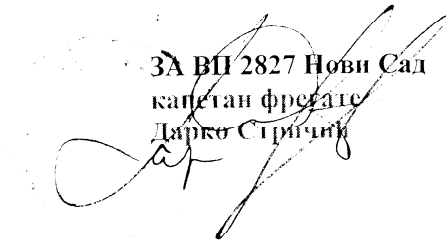 ЗА ВП 2827 Нови Сад
капетан фрегате
Дарко Стричић